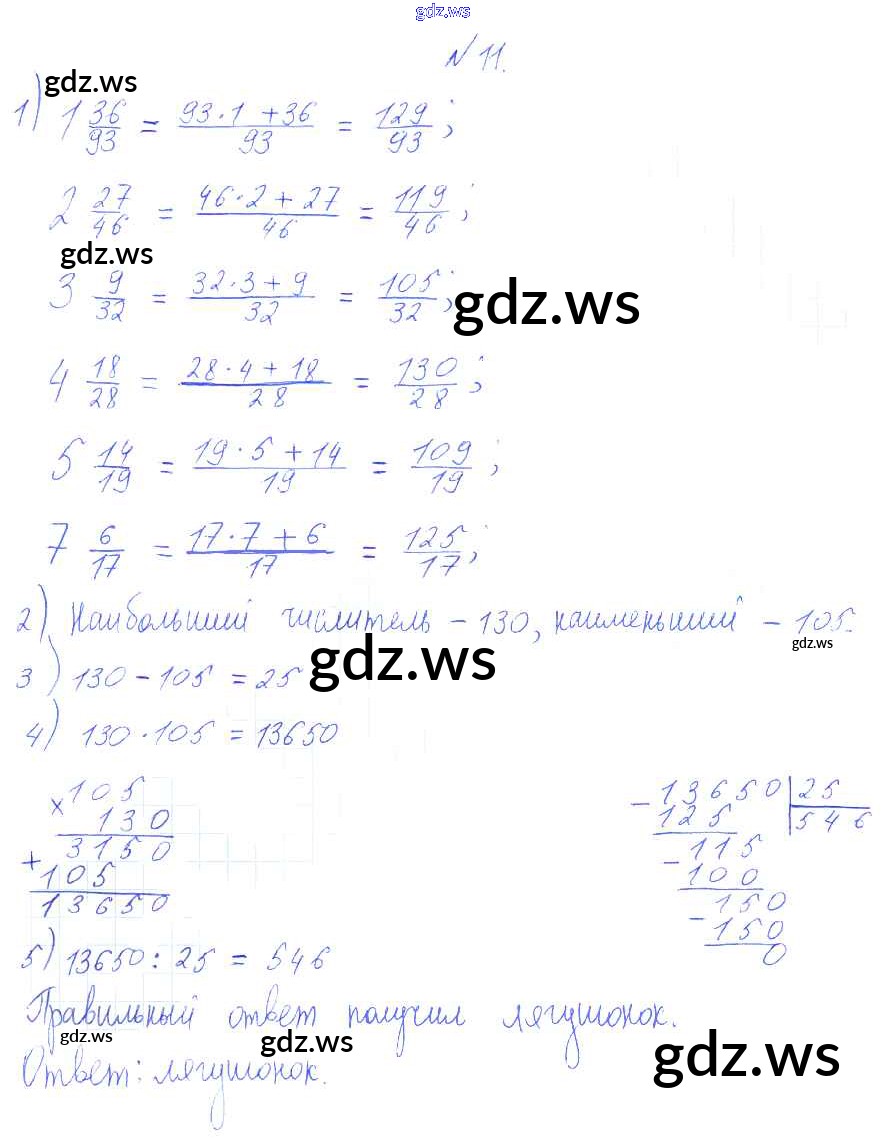 gdz.ws
№ 11.
gdz.ws
1) 1 36/93 = (93·1 + 36)/93 = 129/93;
2 27/46 = (46·2 + 27)/46 = 119/46;
gdz.ws
3 9/32 = (32·3 + 9)/32 = 105/32;
gdz.ws
4 18/28 = (28·4 + 18)/28 = 130/28;
5 14/19 = (19·5 + 14)/19 = 109/19;
7 6/17 = (17·7 + 6)/17 = 125/17;
2) Наибольший числитель – 130, наименьший – 105.
gdz.ws
gdz.ws
3) 130 – 105 = 25
4) 130·105 = 13650
× 105
130
+ 3150
105
13650
– 13650 | 25
125 | 546
– 115
100
– 150
150
0
5) 13650 : 25 = 546
Правильный ответ получил лягушонок.
gdz.ws
gdz.ws
gdz.ws
Ответ: лягушонок.